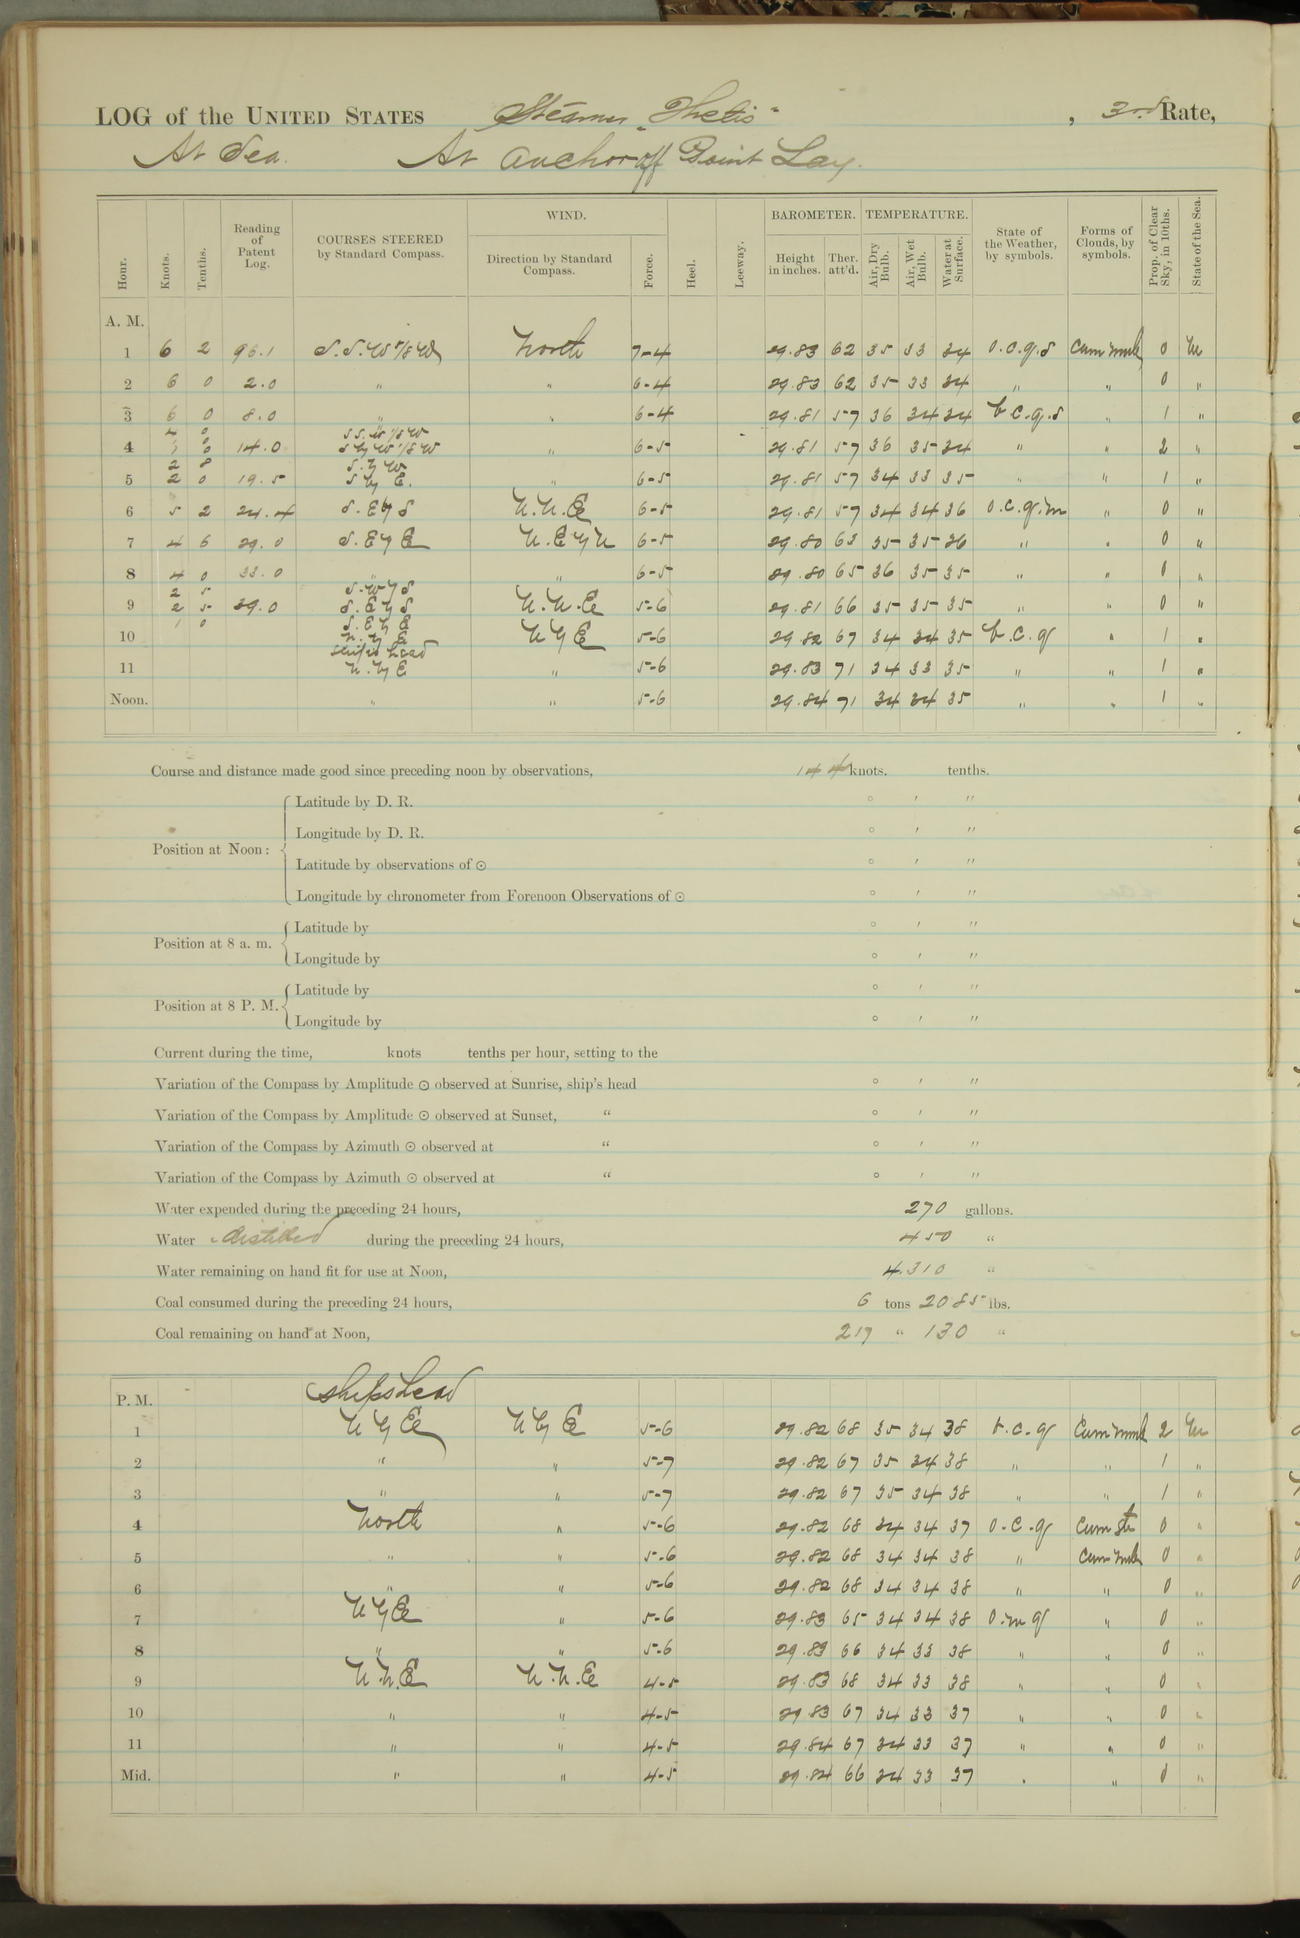 LOG of the UNITED STATES Steamer "Thetis", 3rd Rate,
At Sea. At anchor off Point Lay.
WIND. BAROMETER. TEMPERATURE.
Hour. Knots. Tenths. Reading of Patent Log. COURSES STEERED by Standard Compass. Direction by Standard Compass. Force. Heel. Leeway. Height in inches. Ther. att'd. Air, Dry Bulb. Air, Wet Bulb. Water at Surface. State of the Weather, by symbols. Forms of Clouds, by symbols. Prop. of Clear Sky, in 10ths. State of the Sea.
A. M.
1 6 2 96.1 S.S.W 1/8 W North 7-4 29.83 62 35 33 34 o.c.g.s Cum nimb 0 M
2 6 0 2.0 " " 6-4 29.83 62 35 33 34 " " 0 "
3 6 0 8.0 " " 6-4 29.81 57 36 34 34 b.c.g.s " 1 "
4 0 S.S.W 1/8 W
4 0 14.0 S by W 1/8 W " 6-5 29.81 57 36 35 34 " " 2 "
2 8 S. by W
5 2 0 19.5 S by E. " 6-5 29.81 57 34 33 35 " " 1 "
6 5 2 24.4 S. E by S N.N.E 6-5 29.81 57 34 34 36 o.c.g.m " 0 "
7 4 6 29.0 S. E by E N.E by N 6-5 29.80 63 35 35 36 " " 0 "
8 4 0 33.0 " " 6-5 29.80 65 36 35 35 " " 0 "
2 5 S.W by S
9 2 5 39.0 S. E by S N.N.E 5-6 29.81 66 35 35 35 " " 0 "
1 0 S. E by E
10 N. by E N by E 5-6 29.82 67 34 34 35 b.c.g " 1 "
ship's head
11 N. by E " 5-6 29.83 71 34 33 35 " " 1 "
Noon. " " 5-6 29.84 71 34 34 35 " " 1 "
Course and distance made good since preceding noon by observations, 144 knots. tenths.
Latitude by D. R. ° ′ ″
Longitude by D. R. ° ′ ″
Position at Noon:
Latitude by observations of ☉ ° ′ ″
Longitude by chronometer from Forenoon Observations of ☉ ° ′ ″
Latitude by ° ′ ″
Position at 8 a. m.
Longitude by ° ′ ″
Latitude by ° ′ ″
Position at 8 P. M.
Longitude by ° ′ ″
Current during the time, knots tenths per hour, setting to the
Variation of the Compass by Amplitude ☉ observed at Sunrise, ship's head ° ′ ″
Variation of the Compass by Amplitude ☉ observed at Sunset, " ° ′ ″
Variation of the Compass by Azimuth ☉ observed at " ° ′ ″
Variation of the Compass by Azimuth ☉ observed at " ° ′ ″
Water expended during the preceding 24 hours, 270 gallons.
Water distilled during the preceding 24 hours, 450 "
Water remaining on hand fit for use at Noon, 4310 "
Coal consumed during the preceding 24 hours, 6 tons 2085 lbs.
Coal remaining on hand at Noon, 217 " 130 "
P. M. ships head
1 N by E N by E 5-6 29.82 68 35 34 38 b.c.g Cum nimb 2 M
2 " " 5-7 29.82 67 35 34 38 " " 1 "
3 " " 5-7 29.82 67 35 34 38 " " 1 "
4 North " 5-6 29.82 68 34 34 37 o.c.g Cum St 0 "
5 " " 5-6 29.82 68 34 34 38 " Cum nimb 0 "
6 " " 5-6 29.82 68 34 34 38 " " 0 "
7 N by E " 5-6 29.83 65 34 34 38 o.m.g " 0 "
8 " " 5-6 29.83 66 34 33 38 " " 0 "
9 N.N.E N.N.E 4-5 29.83 68 34 33 38 " " 0 "
10 " " 4-5 29.83 67 34 33 37 " " 0 "
11 " " 4-5 29.84 67 34 33 37 " " 0 "
Mid. " " 4-5 29.84 66 34 33 37 " " 0 "